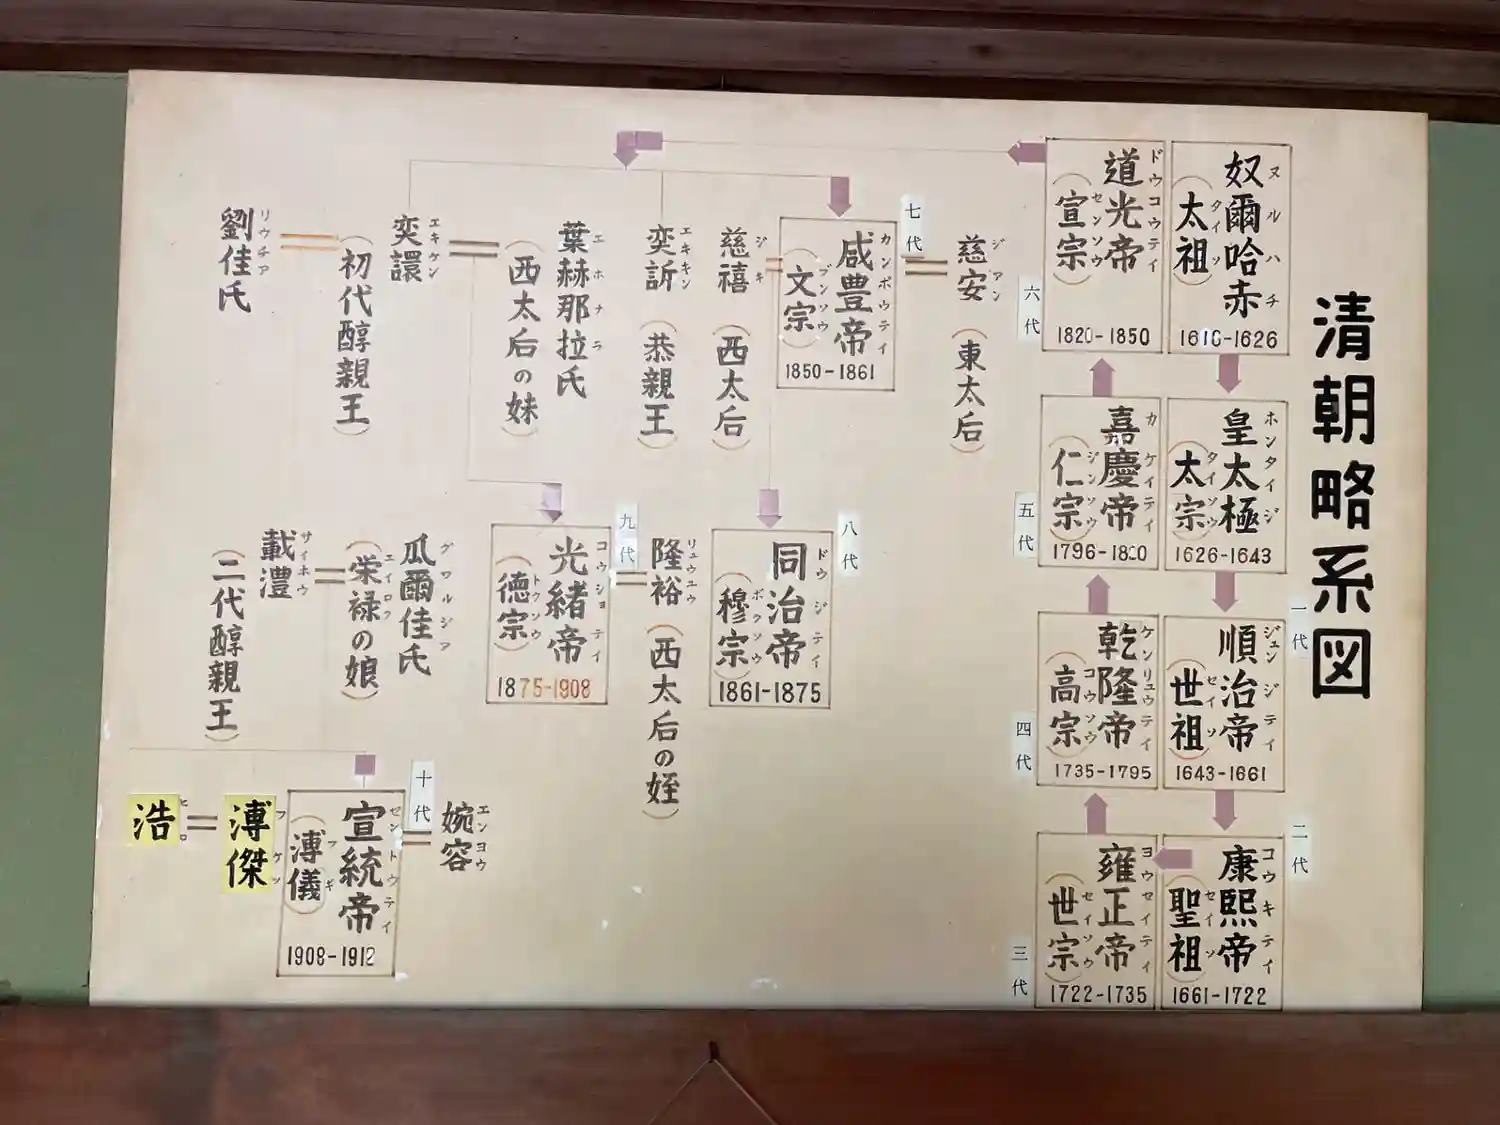 清朝略系図
奴爾哈赤
ヌルハチ
（太祖）
タイソ
1616-1626
皇太極
ホンタイジ
（太宗）
タイソウ
1626-1643
一代
順治帝
ジュンジテイ
（世祖）
セイソ
1643-1661
二代
康熙帝
コウキテイ
（聖祖）
セイソ
1661-1722
三代
雍正帝
ヨウセイテイ
（世宗）
セイソウ
1722-1735
四代
乾隆帝
ケンリュウテイ
（高宗）
コウソウ
1735-1795
五代
嘉慶帝
カケイテイ
（仁宗）
ジンソウ
1796-1820
六代
道光帝
ドウコウテイ
（宣宗）
センソウ
1820-1850
慈安（東太后）
ジアン
七代
咸豊帝
カンポウテイ
（文宗）
ブンソウ
1850-1861
慈禧（西太后）
ジキ
奕訢（恭親王）
エキキン
葉赫那拉氏
エホナラ
（西太后の妹）
奕譞
エキケン
（初代醇親王）
劉佳氏
リウチア
八代
同治帝
ドウジテイ
（穆宗）
ボクソウ
1861-1875
隆裕（西太后の姪）
リュウユウ
九代
光緒帝
コウショテイ
（徳宗）
トクソウ
1875-1908
瓜爾佳氏
グワルジア
（栄禄の娘）
エイロク
載灃
サイホウ
（二代醇親王）
婉容
エンヨウ
十代
宣統帝
セントウテイ
（溥儀）
フギ
1908-1912
溥傑
フケツ
浩
ヒロ